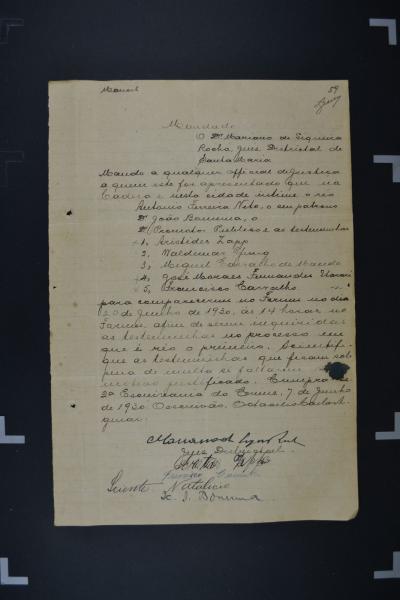 Manoel
59
Mandado
O Dr Mariano de Siqueira
Rocha, Juis Districtal de
Santa Maria
Mando a qualquer official de justiça
a quem este for apresentado que na
Cadeia e nesta cidade intime o réo
Antonio Pereira Netto, o seu patrono
Dr João Bonuma, o
Dr Promotor Publico e as testemunhas
1, Aristides Zapp
2, Waldemar
3, Miguel Carvalho de
4, José Moraes Fernandes
5, Francisco Carvalho
para comparecerem no Forum no dia
20 de Junho de 1930, ás 14 horas no
Forum, afim de serem inqueridas
as testemunhas no processo em
que é réo o primeiro. Scientifi-
que as testemunhas que ficam sob
pena de multa se faltarem
justificado. Cumpra-se
2o Escrivania do Crime, 7 de Junho
de 1930. O escrivão,
Juis Districtal
Sciente Natalicio
J. Bonuma